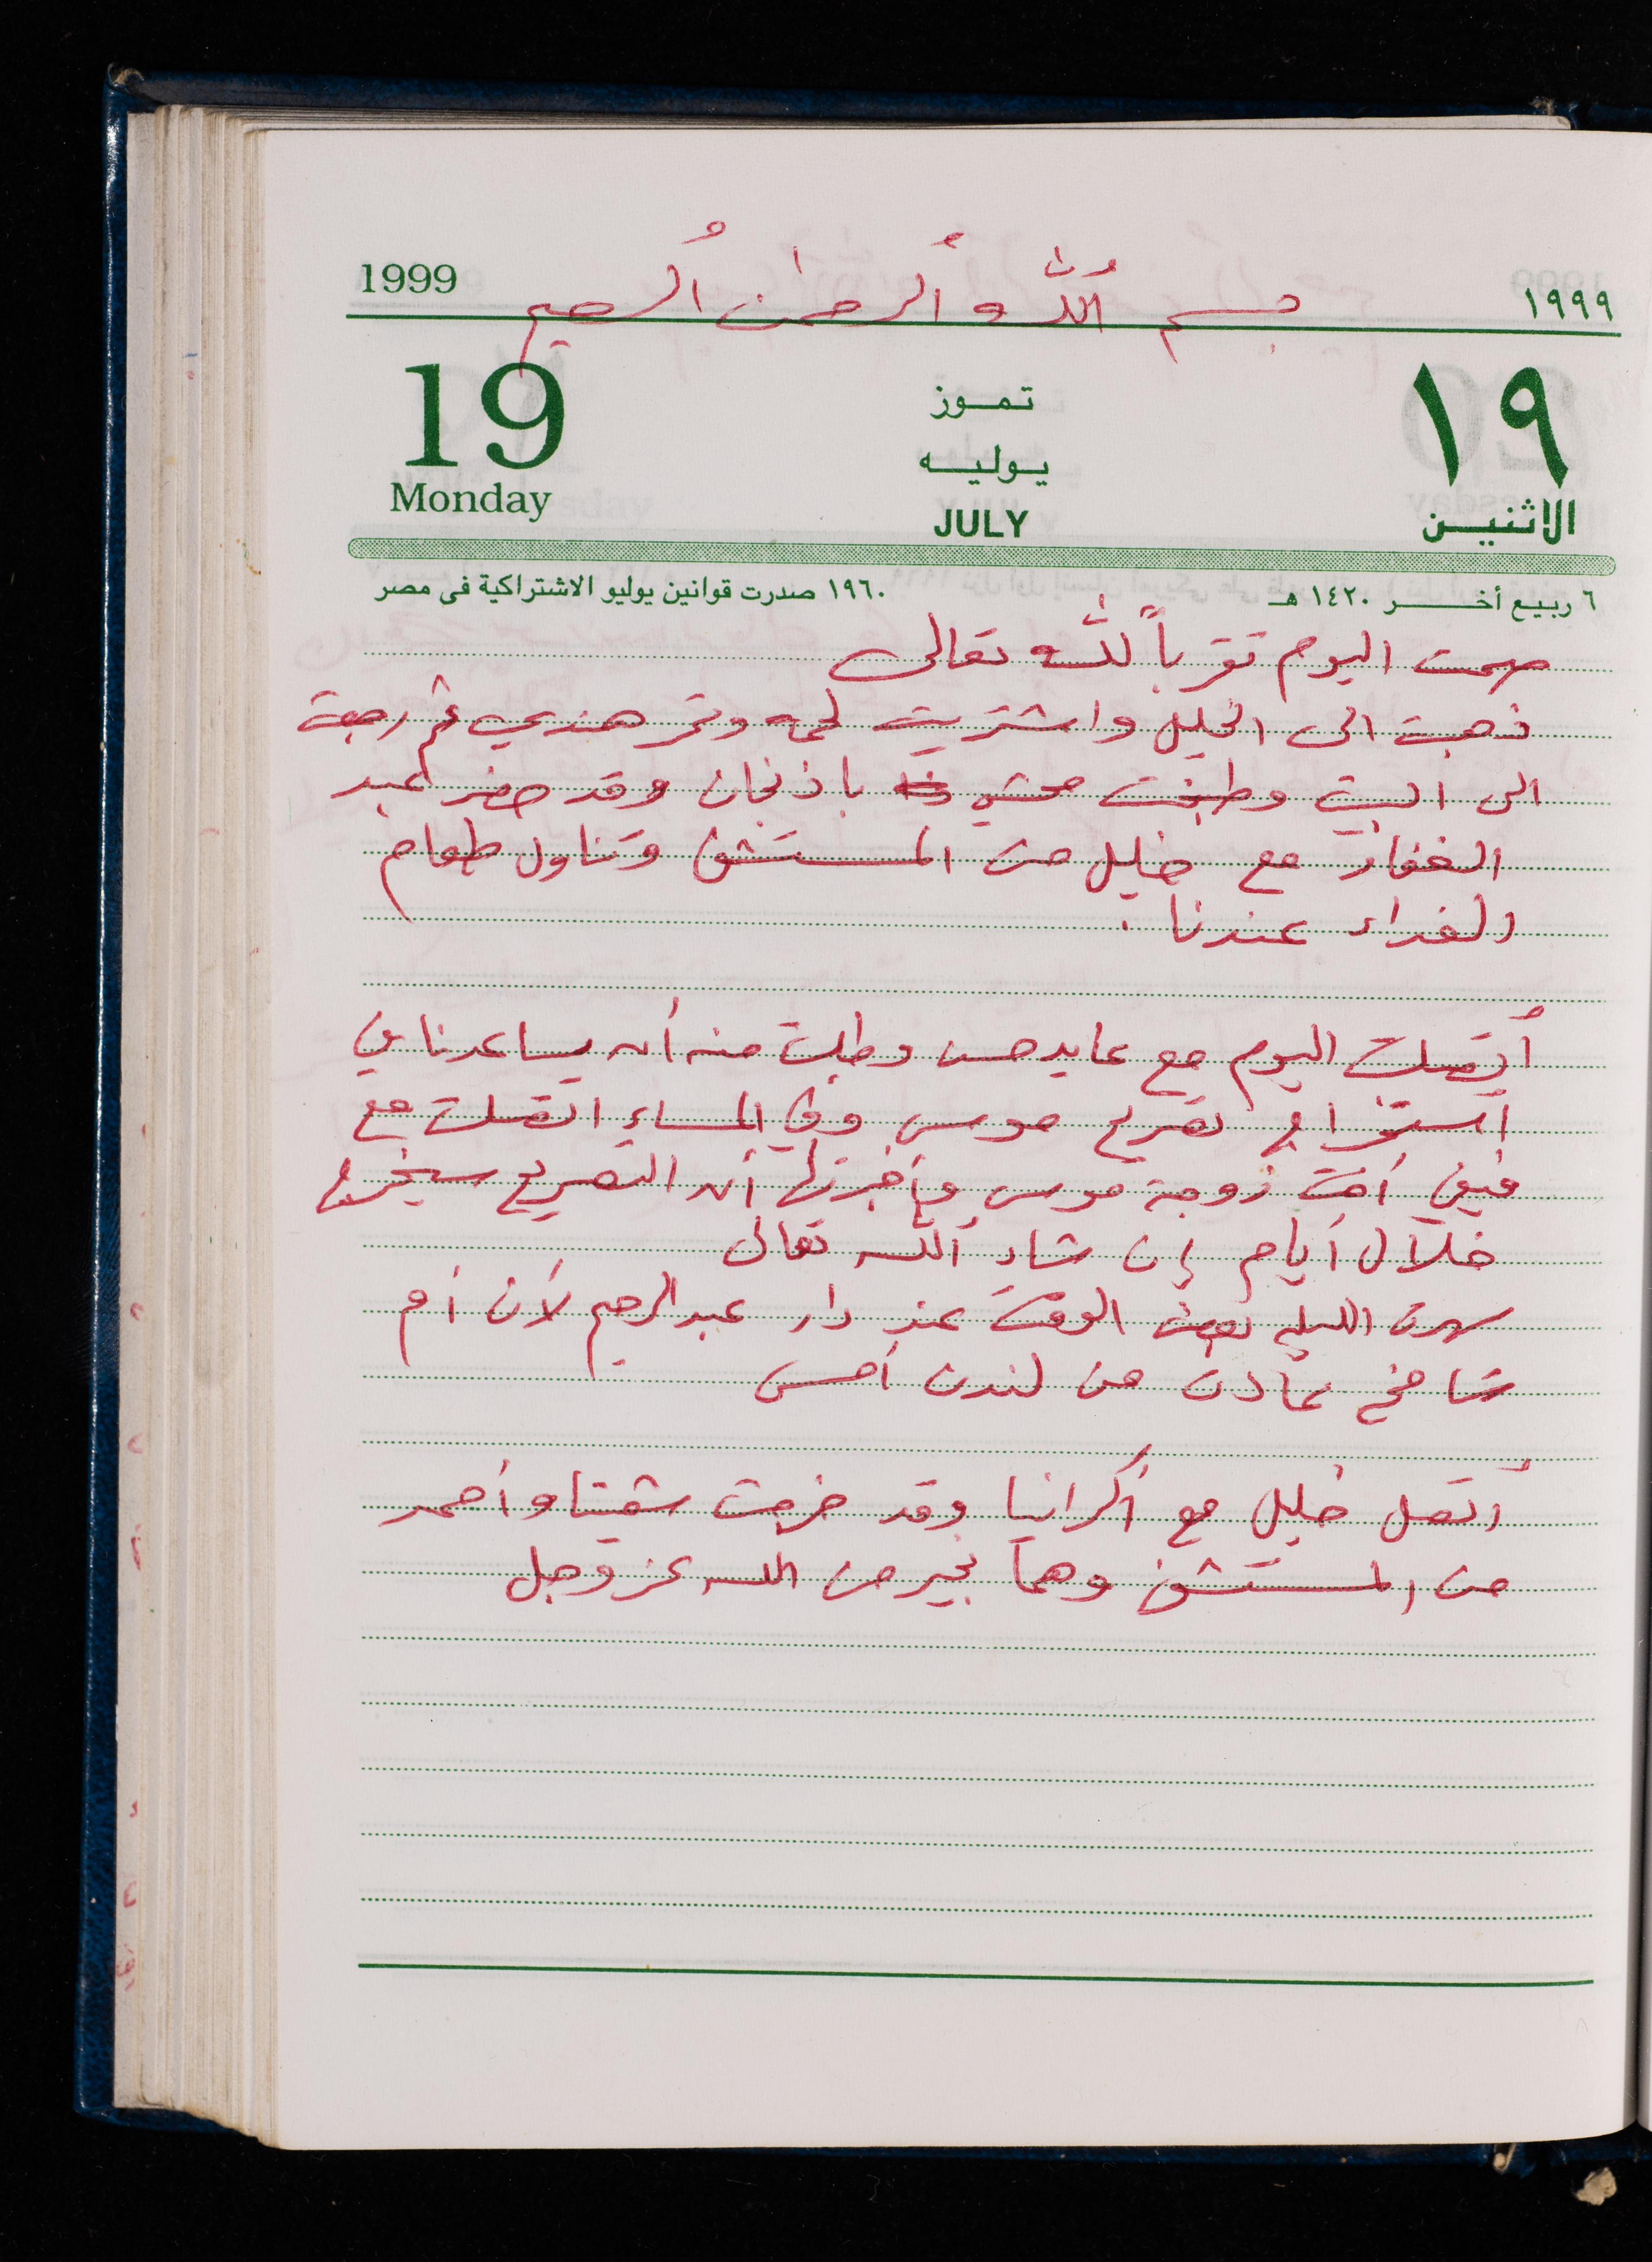 بسم الله الرحمن الرحيم
1999
١٩٩٩
19
تموز
١٩
يوليه
Monday
JULY
الاثنين
٦ ربيع أخر ١٤٢٠ هـ
١٩٦٠ صدرت قوانين يوليو الاشتراكية فى مصر
صمت اليوم تقرباً لله تعالى
ذهبت الى الخليل واشتريت لحمه وتمر هندي ثم رجعت
الى البيت وطبخت محشي باذنجان وقد حضر عبد
الغفار مع خليل من المستشفى وتناول طعام
الغداء عندنا.
أتصلت اليوم مع عايد حسن وطلبت منه أن يساعدنا في
أستخراج تصريح موسى وفي المساء اتصلت مع
أخت زوجة موسى وأخبرتها أن التصريح سيخرج
خلال أيام إن شاء الله تعالى
سهرت الليله بعض الوقت عند دار عبدالرحيم لأن أم
شامخ عادت من لندن أمس
أتصل خليل مع أكرانيا وقد خرجت سفيتا وأحمد
من المستشفى وهما بخير من الله عز وجل